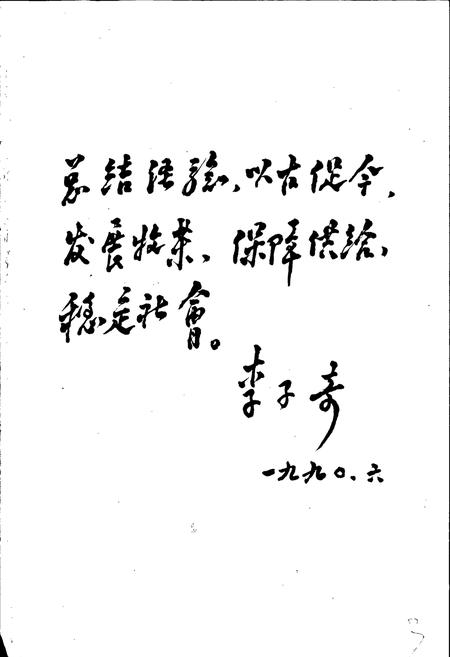 总结经验，以古促今，
发展物业，保障供给，
稳定社會。
李子奇
一九九〇.六